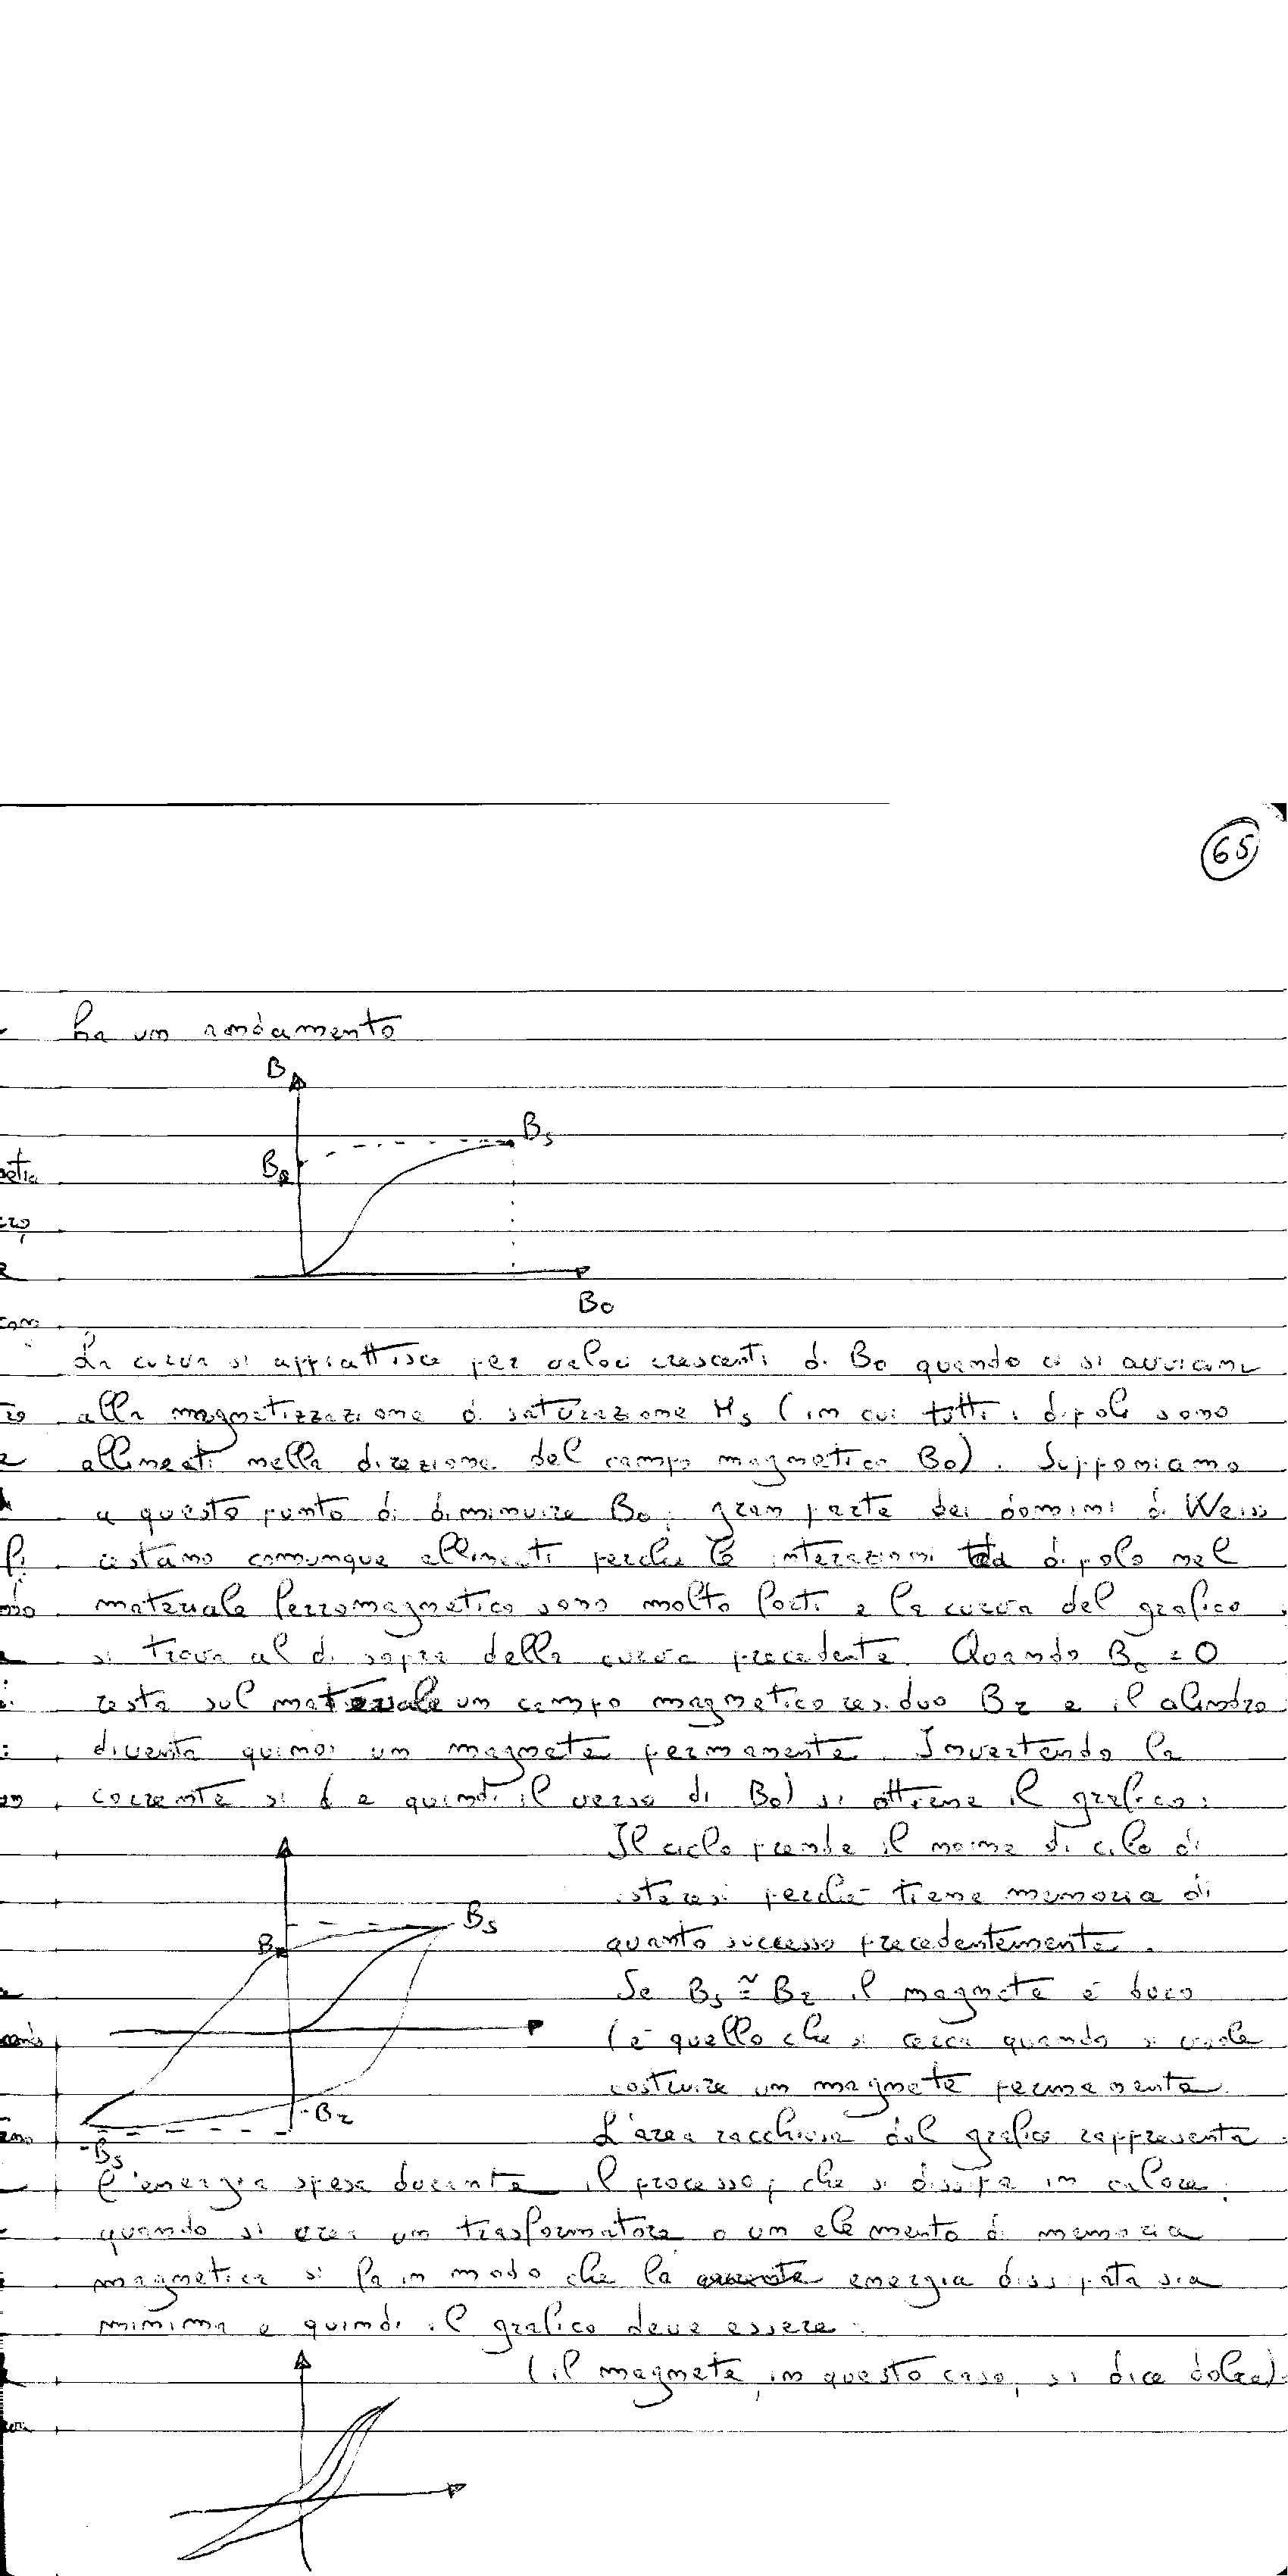 65
ha un andamento
B
Bs
BR
B0
La curva si appiattisce per valori crescenti di B0 quando ci si avvicina
alla magnetizzazione di saturazione Ms (in cui tutti i dipoli sono
allineati nella direzione del campo magnetico B0). Supponiamo
a questo punto di diminuire B0; gran parte dei domini di Weiss
restano comunque allineati perche le interazioni da dipolo nel
materiale ferromagnetico sono molto forti e la curva del grafico
si trova al di sopra della curva precedente. Quando B0 = 0
resta sul materiale un campo magnetico residuo Br e il cilindro
diventa quindi un magnete permanente. Invertendo la
corrente si (e quindi il verso di B0) si ottiene il grafico:
Il ciclo prende il nome di ciclo di
isteresi perchè tiene memoria di
Bs
BR
quanto successo precedentemente.
Se Bs ≅ Br il magnete è duro
(è quello che si cerca quando si vuole
costruire un magnete permanente.
-Br
L'area racchiusa dal grafico rappresenta
-Bs
l'energia spesa durante il processo, che si dissipa in calore;
quando si crea un trasformatore o un elemento di memoria
magnetica si fa in modo che la energia dissipata sia
minima e quindi il grafico deve essere:
(il magnete, in questo caso, si dice dolce).